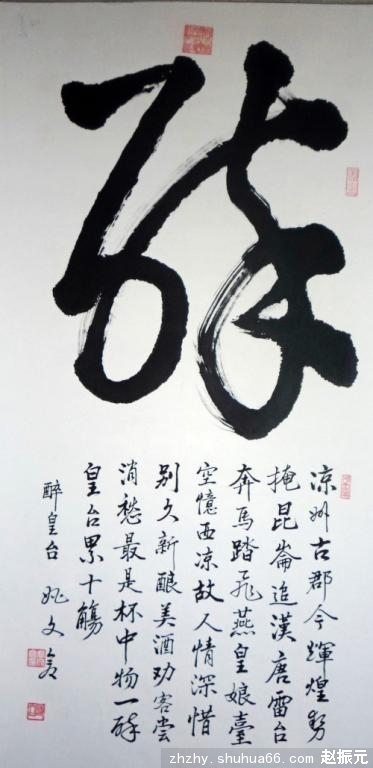 醉
凉州古郡今輝煌努
掩昆崙追漢唐雷台
奔馬踏飛燕皇娘臺
空憶西凉故人情深惜
别久新酿美酒劝客尝
消愁最是杯中物一醉
皇台累十觴
醉皇台 姚文
zhzhy.shuhua66.com 赵振元